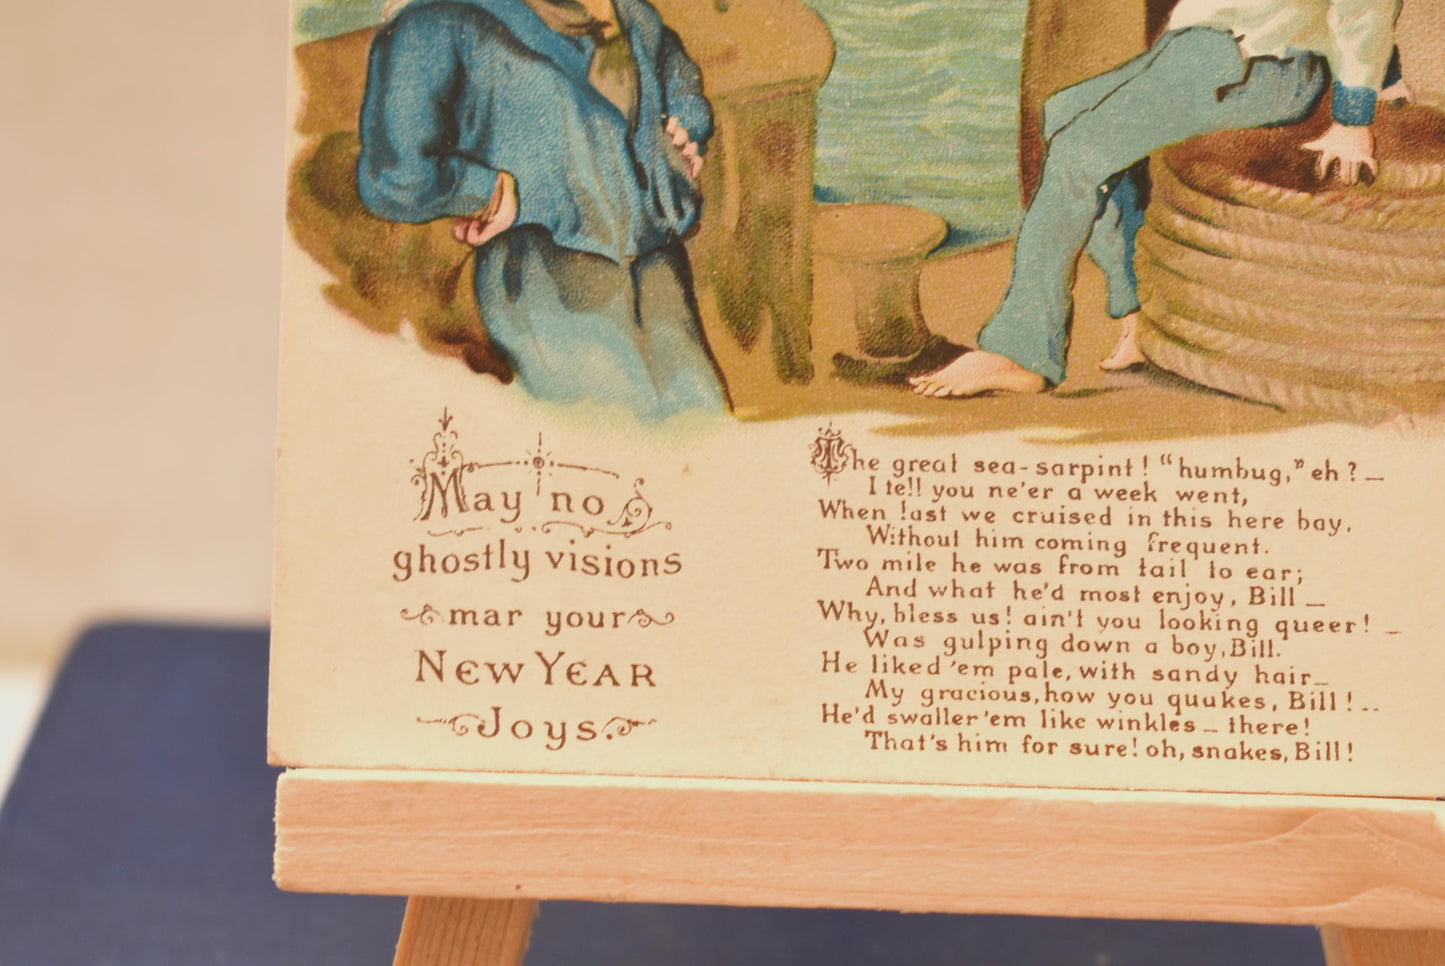 May no
ghostly visions
mar your
NEW YEAR
Joys.
The great sea-sarpint! "humbug," eh? —
I tell you ne'er a week went,
When last we cruised in this here bay,
Without him coming frequent.
Two mile he was from tail to ear;
And what he'd most enjoy, Bill —
Why, bless us! ain't you looking queer! —
Was gulping down a boy, Bill.
He liked 'em pale, with sandy hair —
My gracious, how you quukes, Bill! ..
He'd swaller 'em like winkles — there!
That's him for sure! oh, snakes, Bill!